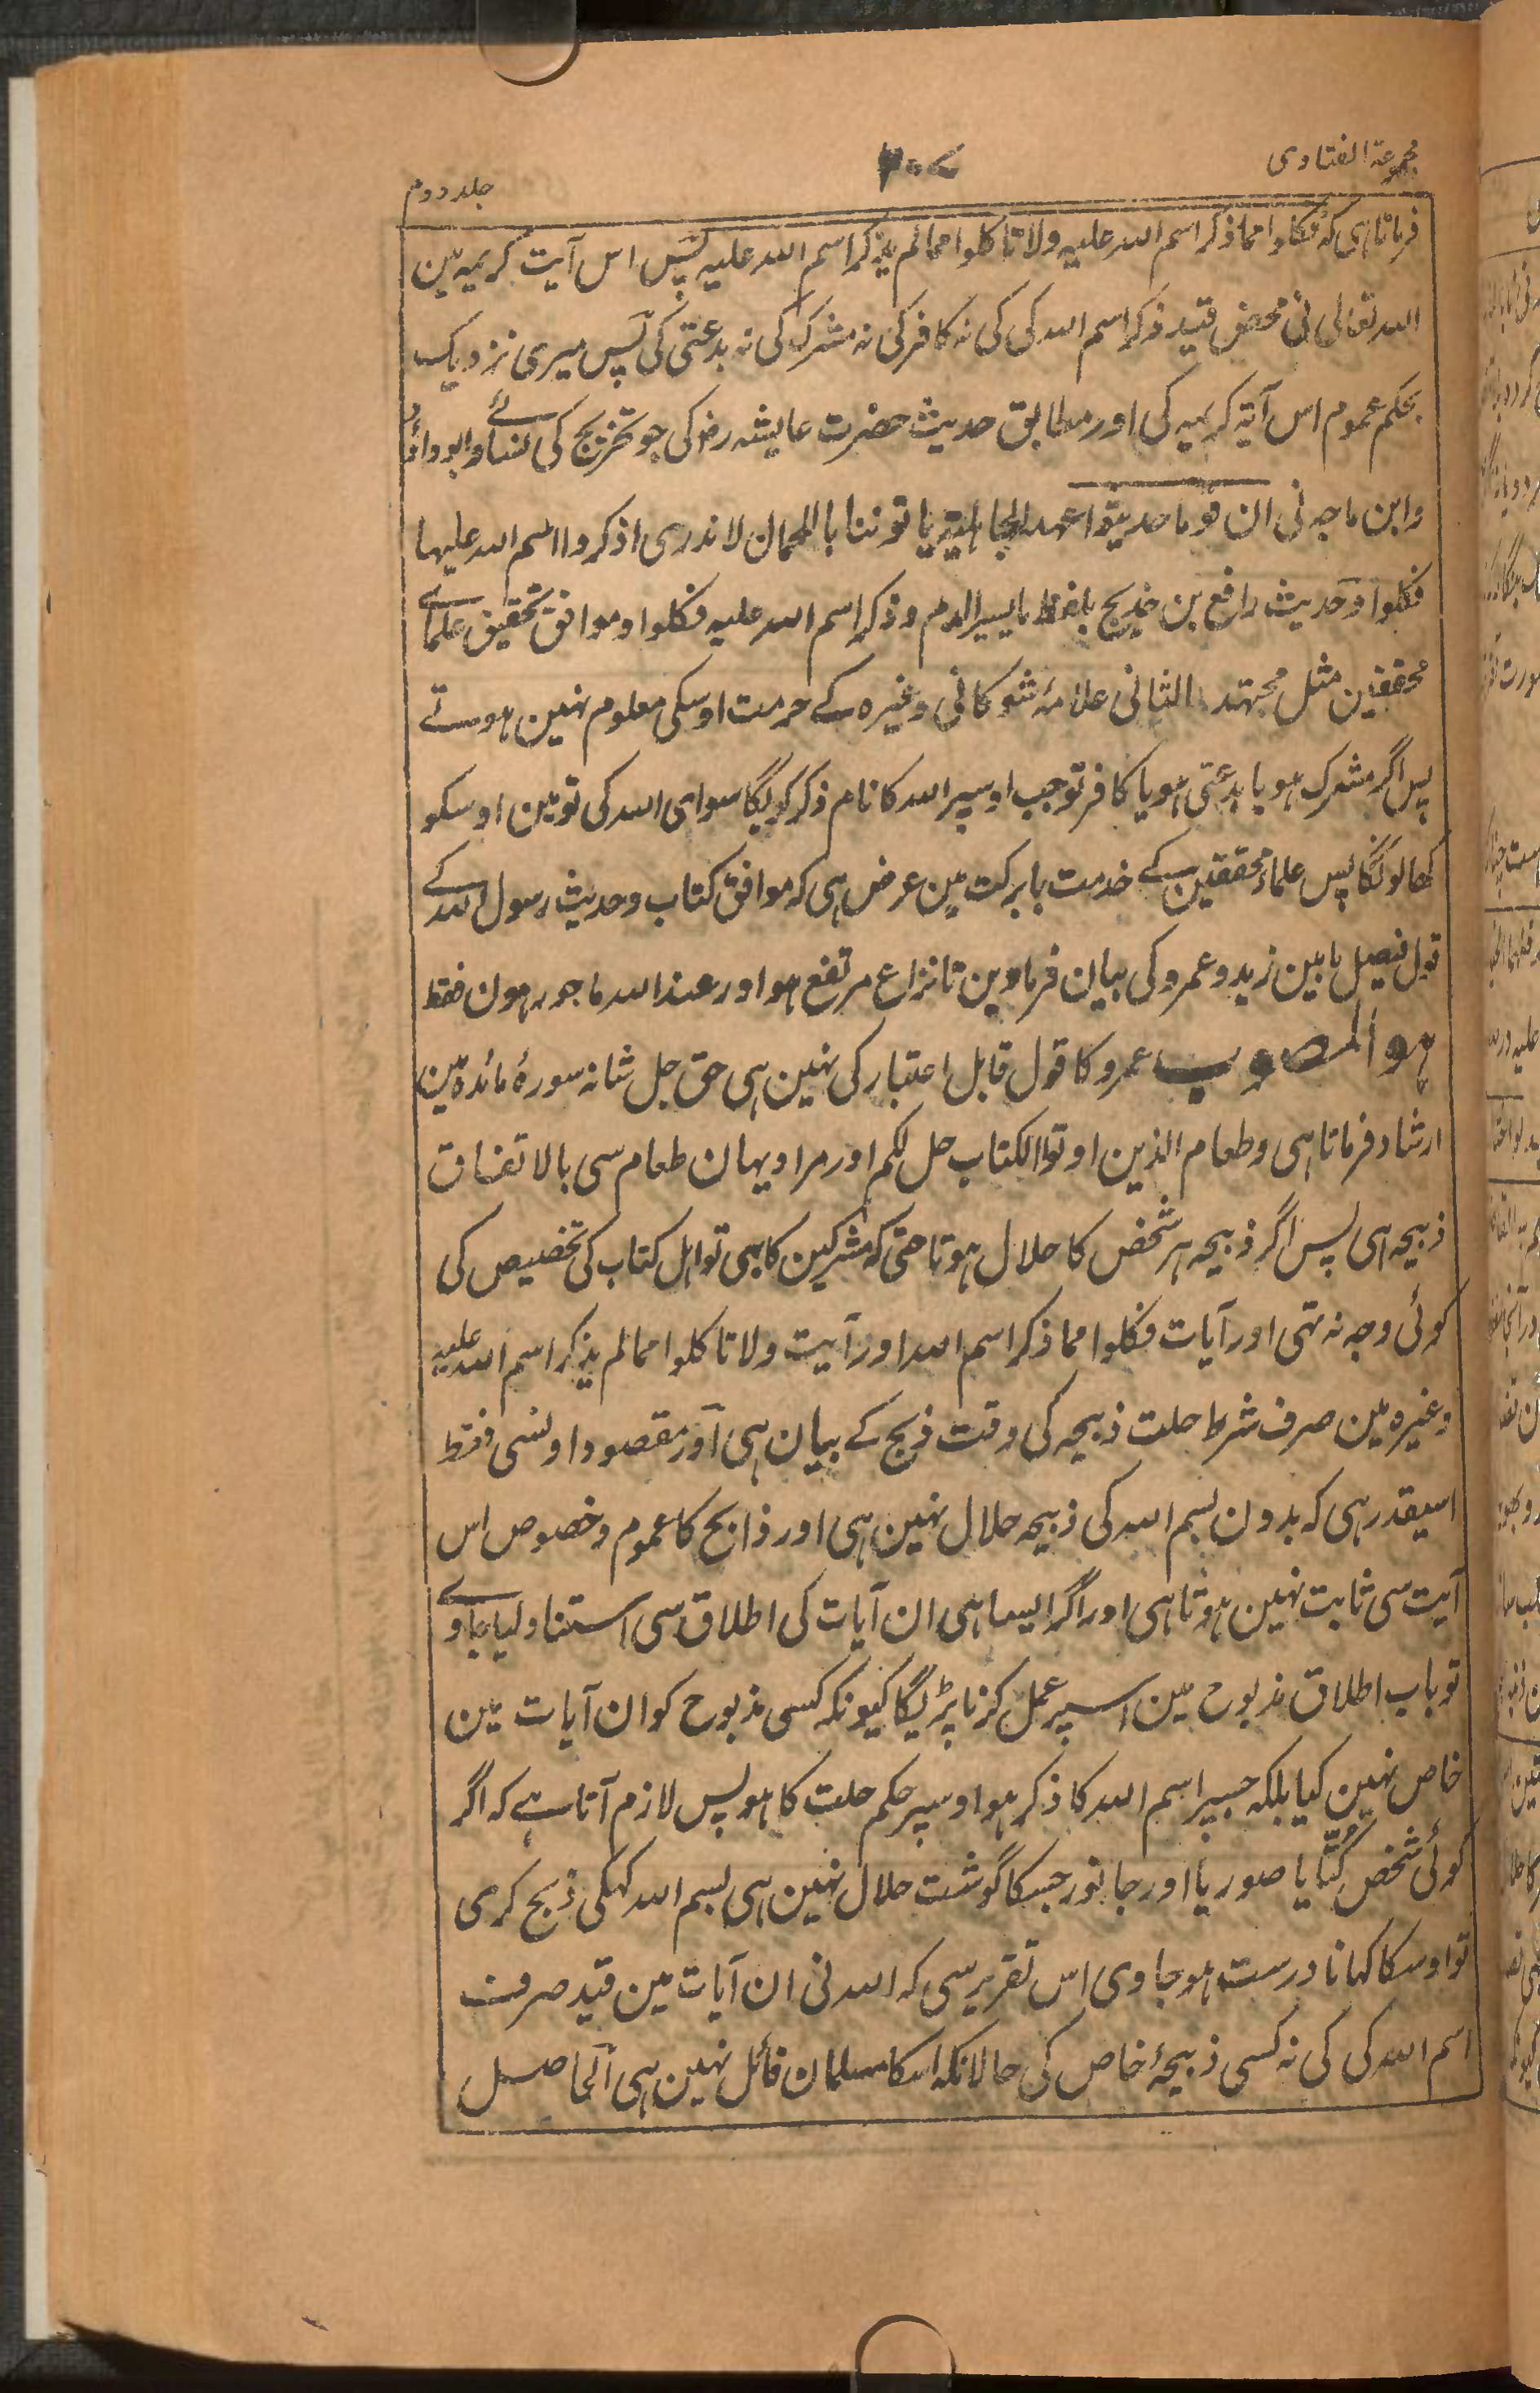 مجموعۃ الفتاوی
۲۰۷
جلد دوم
فرماتا ہی کہ فکلوا مما ذکر اسم اللہ علیہ ولا تاکلوا ممالم یذکر اسم اللہ علیہ پس اس آیت کریمہ مین
اللہ تعالی نی محض قید ذکر اسم اللہ کی کی نہ کافر کی نہ مشرک کی نہ بدعتی کی پس میری نزدیک
بحکم عموم اس آیۃ کریمہ کی اور مطابق حدیث حضرت عایشہ رض کی جو تخریج کی نسائے وابوداؤد
وابن ماجہ نی ان قوما حدیثوا عہد الجاہلیۃ یاتوننا باللحمان لا ندری اذکروا اسم اللہ علیہا
فکلوا وحدیث رافع بن خدیج بلفظ مایسیر الدم وذکر اسم اللہ علیہ فکلوا وموافق تحقیق علمائے
محققین مثل مجتہد الثانی علامۂ شوکانی وغیرہ کے حرمت اوسکی معلوم نہین ہوتے
پس اگر مشرک ہو یا بدعتی ہو یا کافر تو جب اوسپر اللہ کا نام ذکر کریگا سوای اللہ کی تو مین اوسکو
کھا لونگا پس علماء محققین کے خدمت بابرکت مین عرض ہی کہ موافق کتاب وحدیث رسول اللہ کے
قول فیصل مابین زید وعمرو کی بیان فرماوین تا نزاع مرتفع ہو اور عند اللہ ماجور ہون فقط
ہو المصوب عمرو کا قول قابل اعتبار کی نہین ہی حق جل شانہ سورۂ مائدہ مین
ارشاد فرماتا ہی وطعام الذین اوتوا الکتاب حل لکم اور مراد یہان طعام سی بالاتفاق
ذبیحہ ہی پس اگر ذبیحہ ہر شخص کا حلال ہوتا حتی کہ مشرکین کا بہی تو اہل کتاب کی تخصیص کی
کوئی وجہ نہ تہی اور آیات فکلوا مما ذکر اسم اللہ اور آیت ولا تاکلوا ممالم یذکر اسم اللہ علیہ
وغیرہ مین صرف شرط حلت ذبیحہ کی وقت ذبح کے بیان ہی اور مقصود اونسی فقط
اسیقدر ہی کہ بدون بسم اللہ کی ذبیحہ حلال نہین ہی اور ذابح کا عموم وخصوص اس
آیت سی ثابت نہین ہوتا ہی اور اگر ایسا ہی ان آیات کی اطلاق سی استناد لیا جاوے
تو باب اطلاق مذبوح مین اسپر عمل کرنا پڑیگا کیونکہ کسی مذبوح کو ان آیات مین
خاص نہین کیا بلکہ جسپر اسم اللہ کا ذکر ہو اوسپر حکم حلت کا ہو پس لازم آتا ہے کہ اگر
کوئی شخص کتّا یا صور یا اور جانور جسکا گوشت حلال نہین ہی بسم اللہ کہکی ذبح کری
تو اوسکا کہانا درست ہو جاوی اس تقریر سی کہ اللہ نی ان آیات مین قید صرف
اسم اللہ کی کی نہ کسی ذبیحۂ خاص کی حالانکہ اسکا مسلمان قائل نہین ہی الحاصل